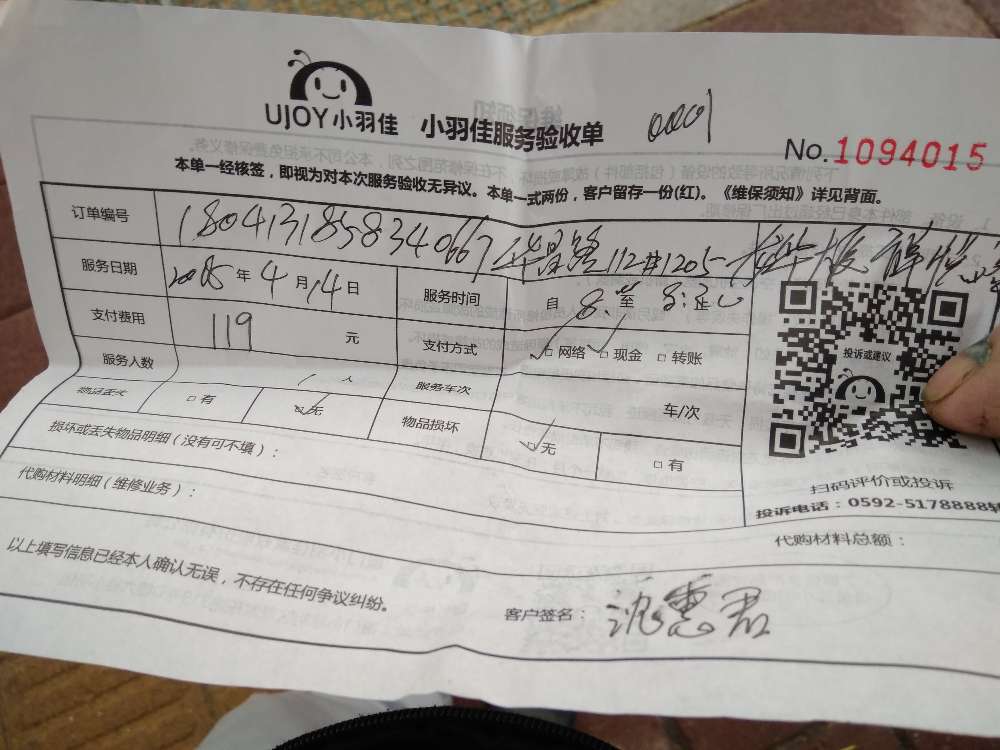 UJOY小羽佳 小羽佳服务验收单 0001
No. 1094015
本单一经核签，即视为对本次服务验收无异议。本单一式两份，客户留存一份(红)。《维保须知》详见背面。
订单编号 1804131858340667 华昌路112#1205
服务日期 2018年4月14日 服务时间 自8:至
支付费用 119 元 支付方式 网络 现金 转账
服务人数 1人 服务车次 车/次
物品丢失 有 无 物品损坏 无 有
投诉或建议
损坏或丢失物品明细（没有可不填）：
扫码评价或投诉
代购材料明细（维修业务）：
投诉电话：0592-5178888转
代购材料总额：
以上填写信息已经本人确认无误，不存在任何争议纠纷。
客户签名：沈惠君